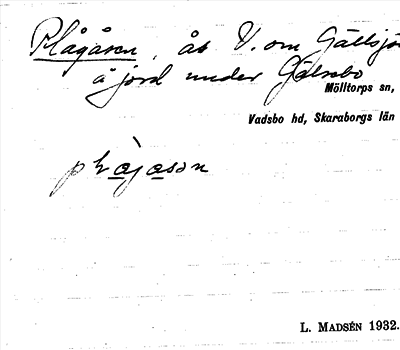 Plågåsen, ås V. om Gällsjö
å jord under Gälsebo
Mölltorps sn,
Vadsbo hd, Skaraborgs län
L. MADSÉN 1932.